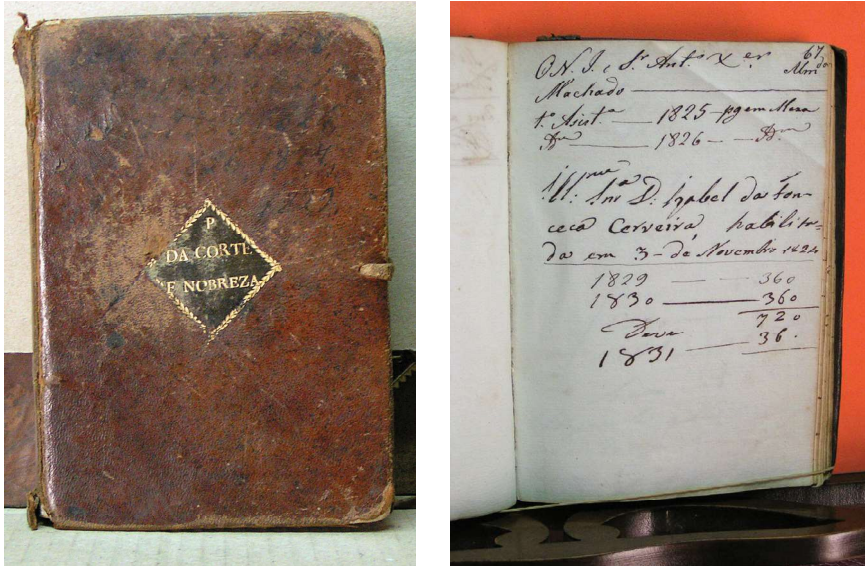 P
DA CORTE
E NOBREZA
67
O N. I. e Sr. Antº. Xer. Almda
Machado
1825 pg em Meza
1826
Illma Snra D. Izabel da Fon-
ceca Cerveira, habilita-
da em 3 de Novembro 1824
1829 360
1830 360
720
Deve 36.
1831